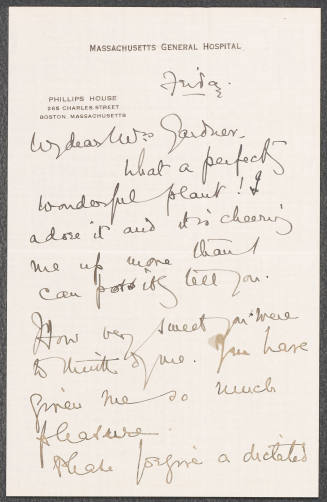 MASSACHUSETTS GENERAL HOSPITAL
Friday.
PHILLIPS HOUSE
265 CHARLES STREET
BOSTON, MASSACHUSETTS
My dear Mrs Gardner.
What a perfectly
wonderful plant! I
adore it and it is cheering
me up more than I
can possibly tell you.
How very sweet you were
to think of me. You have
given me so much
pleasure.
Please forgive a dictated